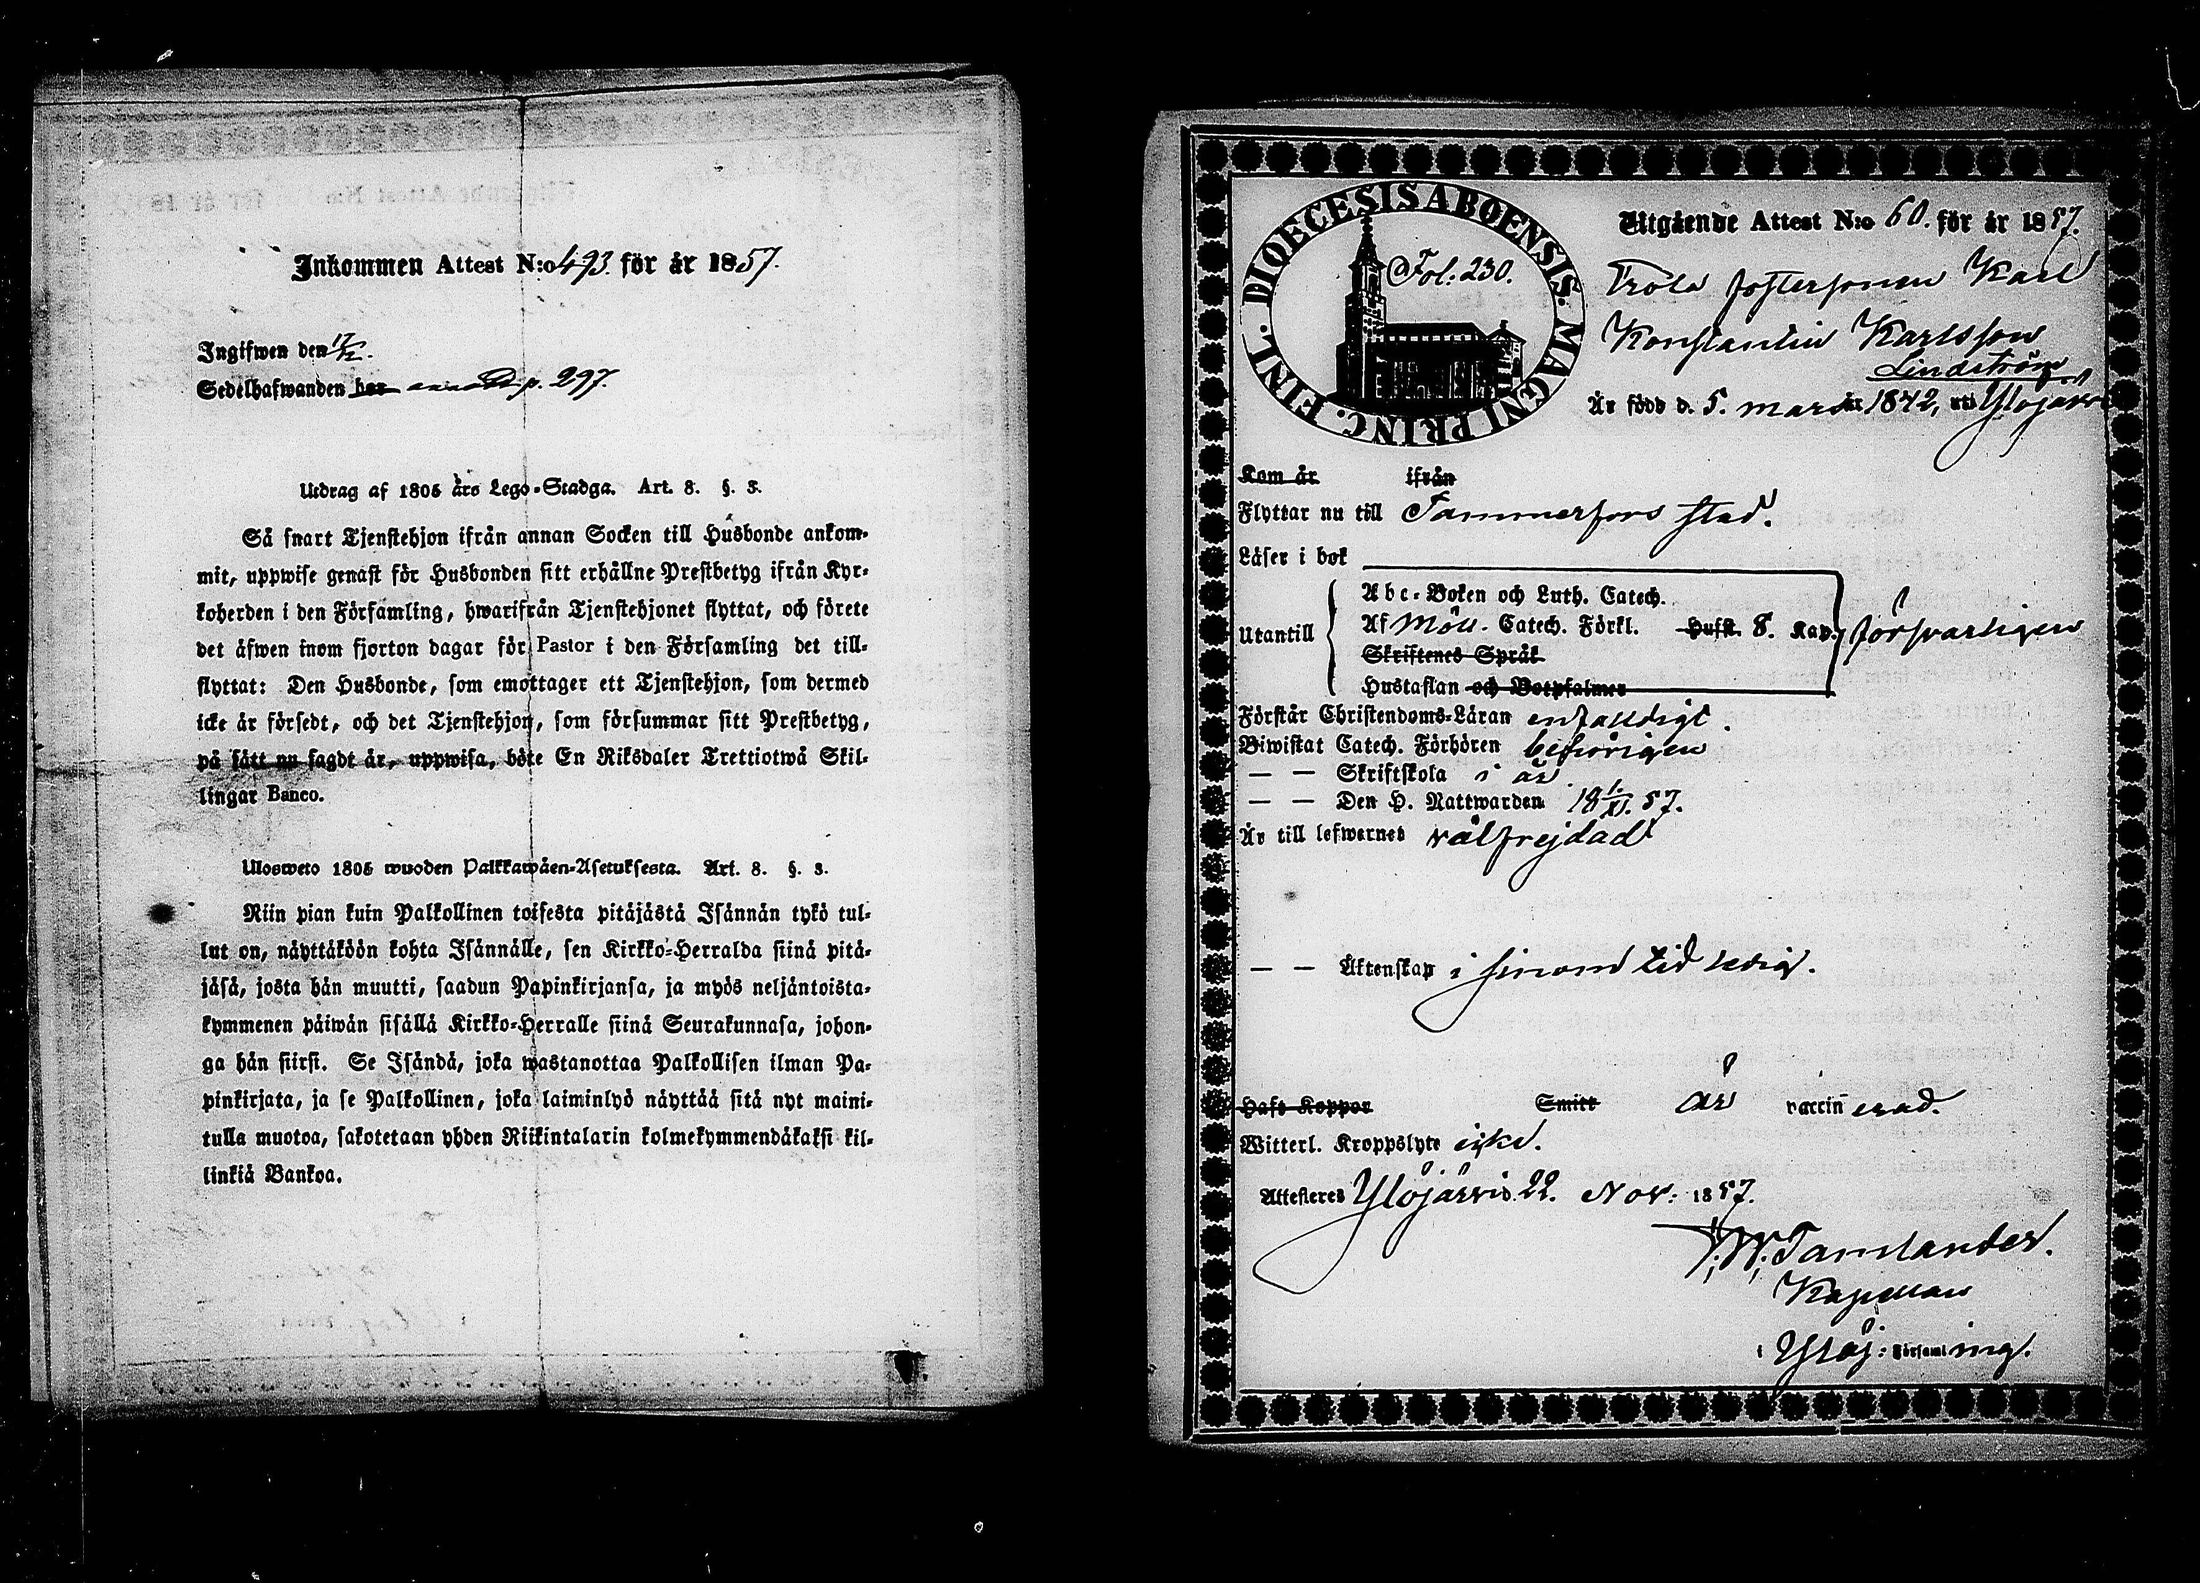 Inkommen Attest N:o 493. för år 1857.
Ingifwen den 17/12.
Sedelhafwanden har p. 297.
Utdrag af 1805 års Lego-Stadga. Art. 8. §. 3.
Så snart Tjenstehjon ifrån annan Socken till Husbonde ankom-
mit, uppwise genast för Husbonden sitt erhållne Prestbetyg ifrån Kyr-
koherden i den Församling, hwarifrån Tjenstehjonet flyttat, och förete
det äfwen inom fjorton dagar för Pastor i den Församling det till-
flyttat: Den Husbonde, som emottager ett Tjenstehjon, som dermed
icke är försedt, och det Tjenstehjon, som försummar sitt Prestbetyg,
på sätt nu sagdt är, uppwisa, böte En Riksdaler Trettiotwå Skil-
lingar Banco.
Ulosweto 1805 wuoden Palkkawäen-Asetuksesta. Art. 8. §. 3.
Niin pian kuin Palkollinen toisesta pitäjästä Isännän tykö tul-
lut on, näyttäköön kohta Isännälle, sen Kirkko-Herralda siinä pitä-
jäsä, josta hän muutti, saadun Papinkirjansa, ja myös neljäntoista-
kymmenen päiwän sisällä Kirkko-Herralle siinä Seurakunnasa, johon-
ga hän siirsi. Se Isändä, joka wastanottaa Palkollisen ilman Pa-
pinkirjata, ja se Palkollinen, joka laiminlyö näyttää sitä nyt maini-
tulla muotoa, sakotetaan yhden Riikintalarin kolmekymmendäkaksi kil-
linkiä Bankoa.
DIOECESIS ABOENSIS. MAGNI PRINC. FINL.
Fol: 230.
Utgående Attest N:o 60. för år 1857.
Trola fostersonen Karl
Konstantin Karlsson
Lindström
Är född d. 5. mars år 1842, uti Ylöjärvi
Kom år ifrån
Flyttar nu till Tammerfors stad.
Läser i bok
Abc-Boken och Luth. Catech.
Utantill Af Möll. Catech. Förkl. Hufst. 8. Kap. försvarligen
Skriftenes Språk
Hustaflan och Botpsalmer
Förstår Christendoms-Läran enfaldigt.
Biwistat Catech. Förhören behörigen
— — Skriftskola i år
— — Den H. Nattwarden 18 1/XI. 57.
Är till lefwernes välfrejdad
— — Äktenskap i sinom tid ledig.
Haft Koppor Smitt är vaccinerad.
Witterl. Kroppslyte icke.
Attesteres Ylöjärvi d. 22. Nov: 1857.
W. Tamlander.
Kapellan
i Ylöj: Församling.